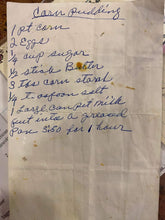 Corn Pudding
1 pt corn
2 Eggs
¼ cup sugar
½ stick Butter
3 tbs corn starch
¼ t. ospoon salt
1 Large can pet milk
put into a greased
Pan 350 for 1 hour